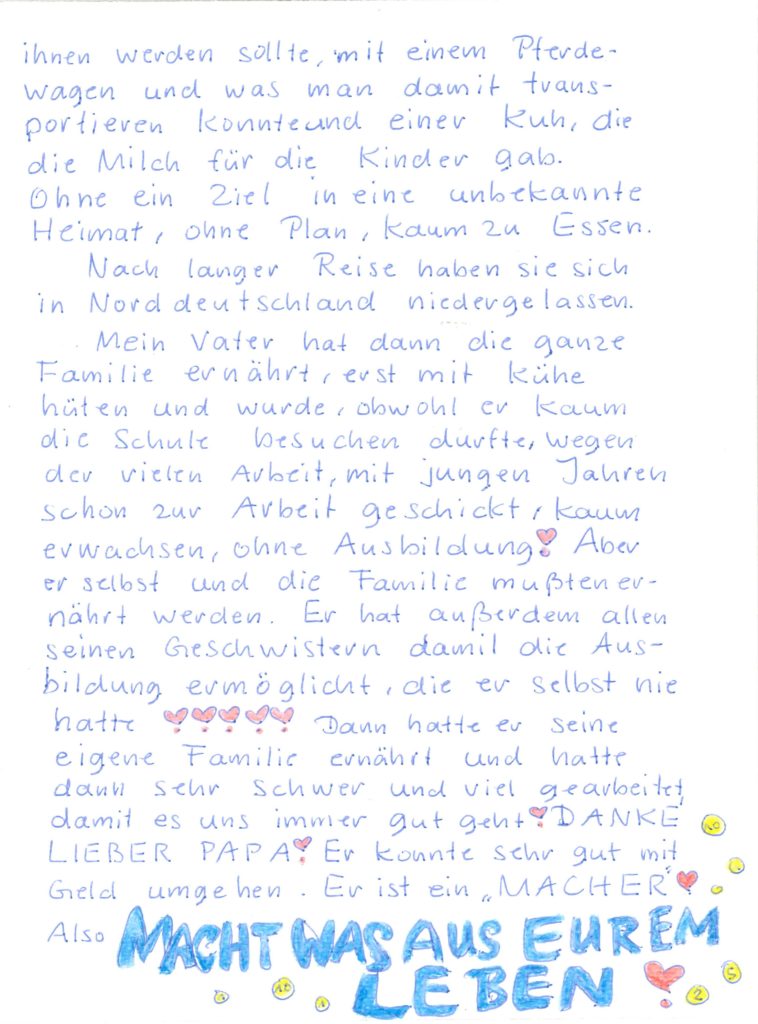 ihnen werden sollte, mit einem Pferde-
wagen und was man damit trans-
portieren konnte und einer Kuh, die
die Milch für die Kinder gab.
Ohne ein Ziel in eine unbekannte
Heimat, ohne Plan, kaum zu Essen.
Nach langer Reise haben sie sich
in Norddeutschland niedergelassen.
Mein Vater hat dann die ganze
Familie ernährt, erst mit Kühe
hüten und wurde, obwohl er kaum
die Schule besuchen durfte, wegen
der vielen Arbeit, mit jungen Jahren
schon zur Arbeit geschickt, kaum
erwachsen, ohne Ausbildung! Aber
er selbst und die Familie mußten er-
nährt werden. Er hat außerdem allen
seinen Geschwistern damit die Aus-
bildung ermöglicht, die er selbst nie
hatte !!!!! Dann hatte er seine
eigene Familie ernährt und hatte
dann sehr schwer und viel gearbeitet,
damit es uns immer gut geht! DANKE
LIEBER PAPA! Er konnte sehr gut mit
Geld umgehen. Er ist ein „MACHER"!
Also MACHT WAS AUS EUREM
LEBEN!
10
10
1
2
5